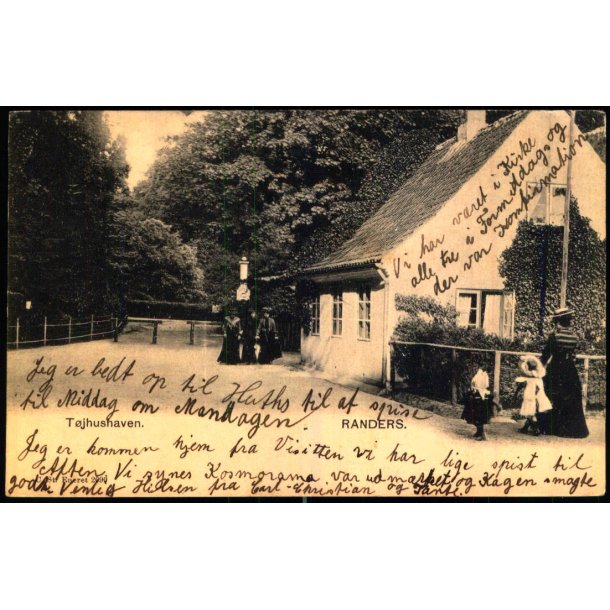 Vi har været i Kirke
alle tre i Formiddags og
der var Konfirmation
Jeg er bedt op til Haths til at spise
til Middag om Mandagen.
Tøjhushaven.
RANDERS.
Jeg er kommen hjem fra Visitten vi har lige spist til
Aften. Vi synes Kosmorama var udmærket og Kagen smagte
godt. Venlig Hilsen fra Carl-Christian og Tante.
Eneret